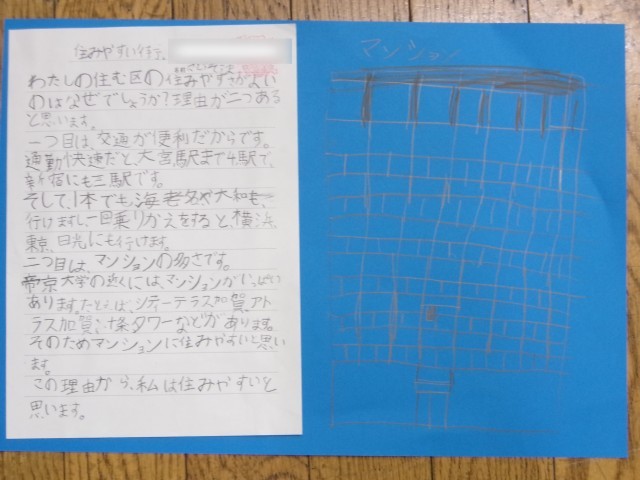 住みやすい街
わたしの住む区の住みやすさがよい
のはなぜでしょうか?理由が二つある
と思います。
一つ目は、交通が便利だからです。
通勤快速だと、大宮駅まで4駅で、
新宿にも三駅です。
そして、1本でも、海老名や大和も、
行けますし、一回乗りかえをすると、横浜、
東京、日光にも行けます。
二つ目は、マンションの多さです。
帝京大学の近くには、マンションがいっぱい
あります。たとえば、シティーテラス加賀、アト
ラス加賀、十条タワーなどがあります。
そのためマンションに住みやすいと思い
ます。
この理由から、私は住みやすいと
思います。
マンション